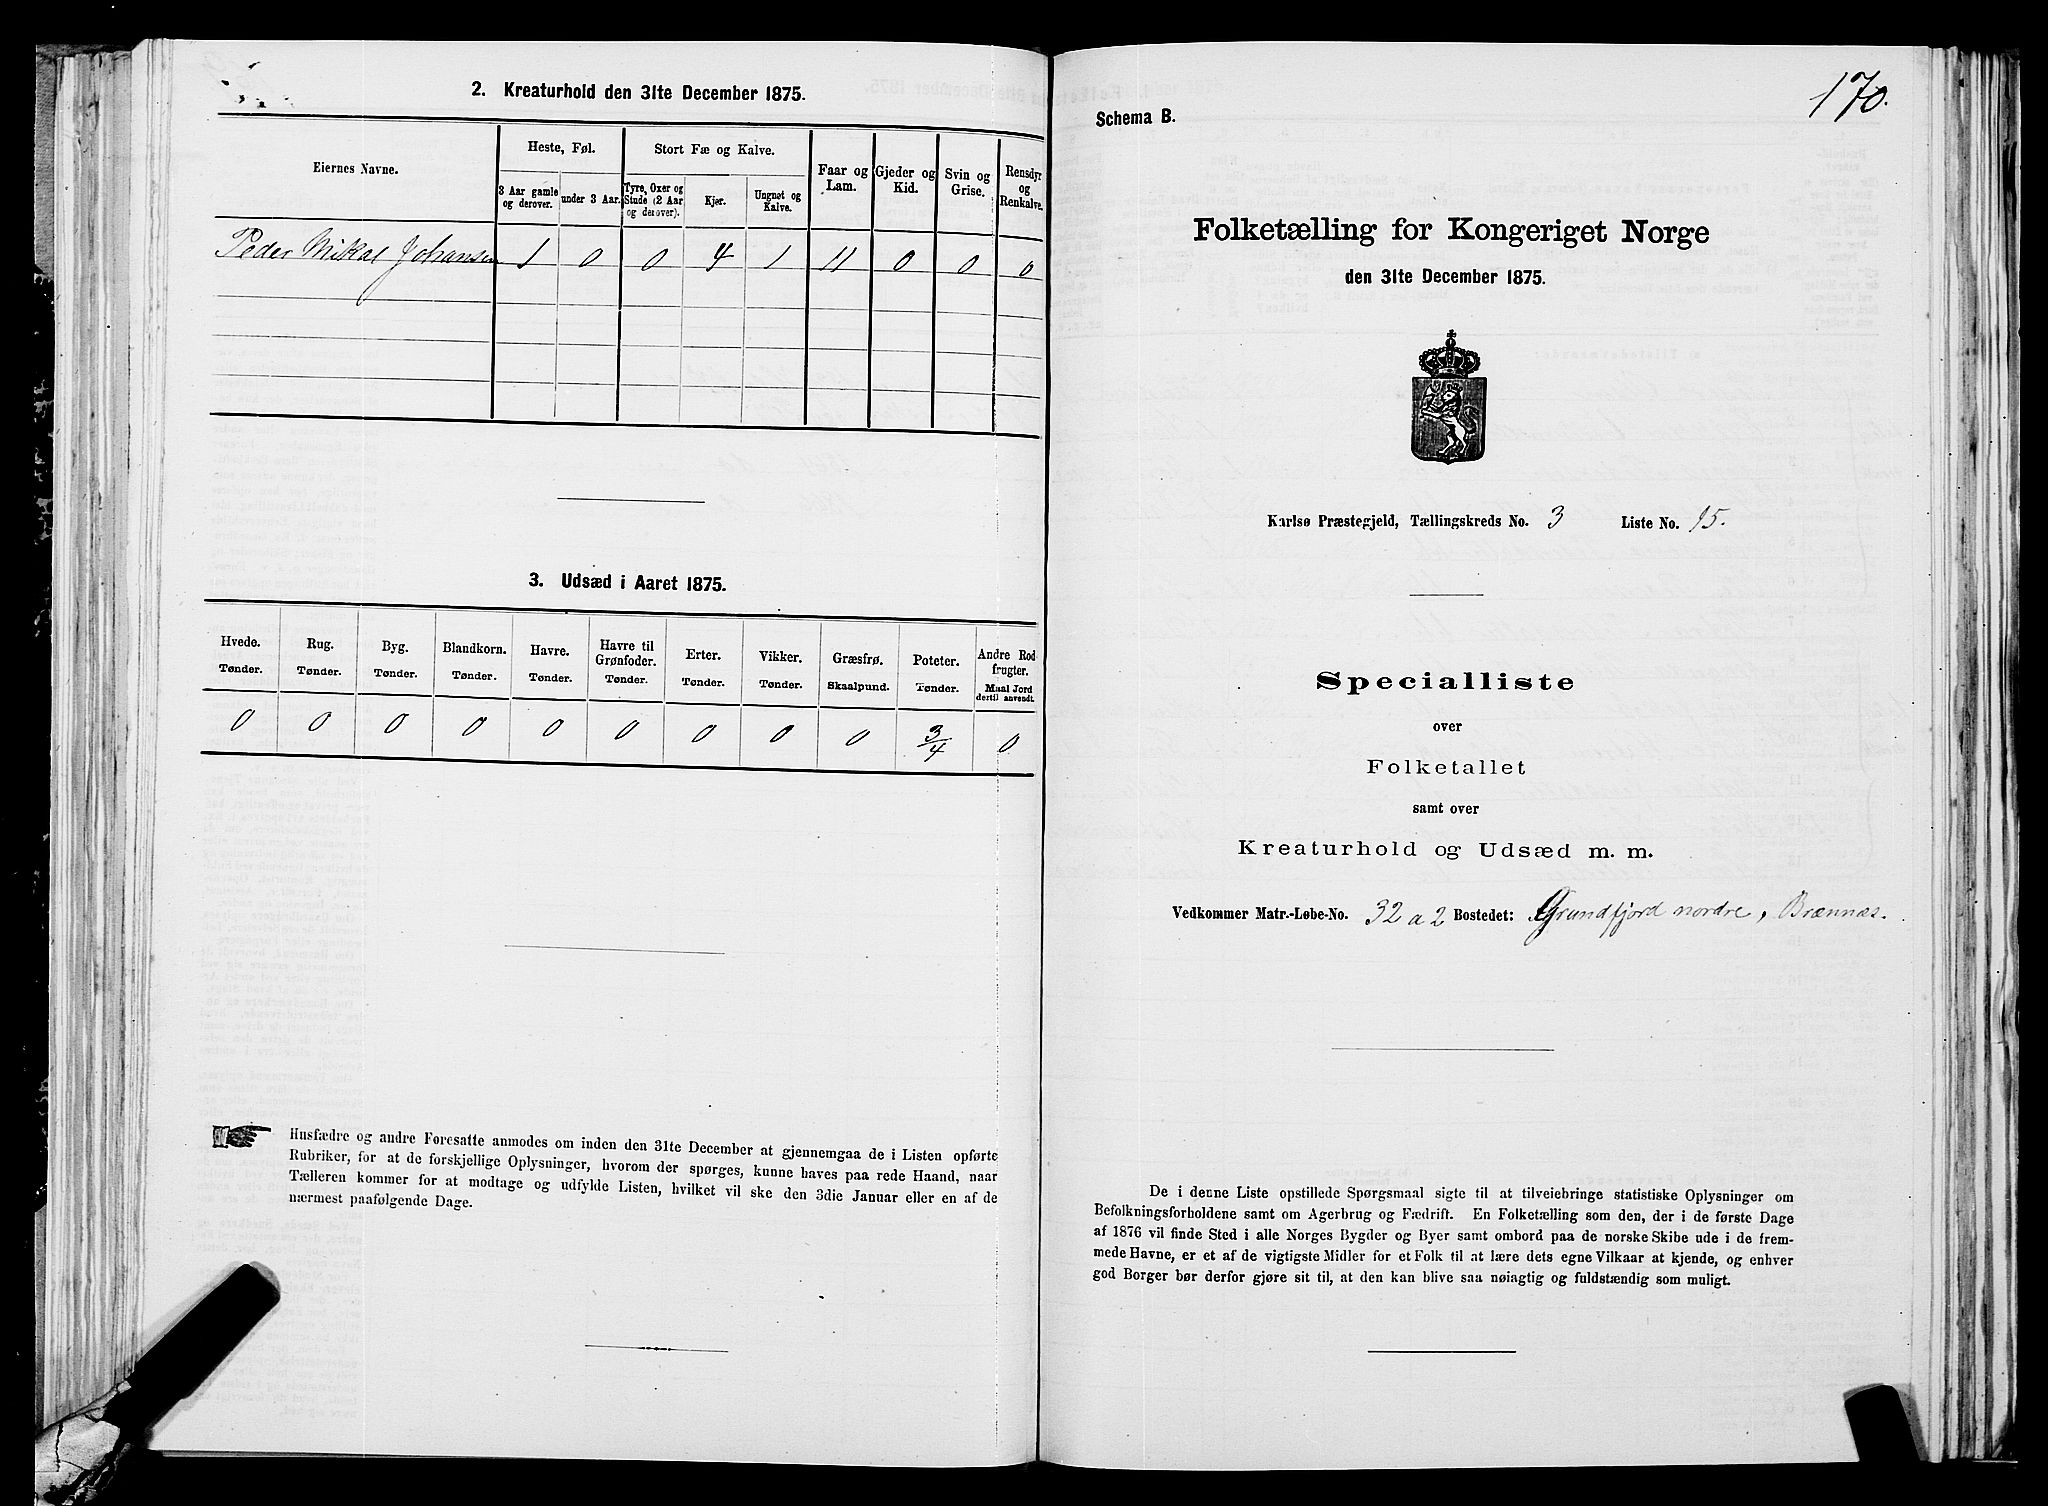 2. Kreaturhold den 31te December 1875.
Eiernes Navne.
Heste, Føl.
Stort Fæ og Kalve.
Faar og Lam.
Gjeder og Kid.
Svin og Grise.
Rensdyr og Renkalve.
3 Aar gamle og derover.
under 3 Aar.
Tyre, Oxer og Stude (2 Aar og derover).
Kjør.
Ungnøt og Kalve.
Peder Mikal Johansen 1 0 0 4 1 11 0 0 0
3. Udsæd i Aaret 1875.
Hvede. Tønder.
Rug. Tønder.
Byg. Tønder.
Blandkorn. Tønder.
Havre. Tønder.
Havre til Grønfoder. Tønder.
Erter. Tønder.
Vikker. Tønder.
Græsfrø. Skaalpund.
Poteter. Tønder.
Andre Rod frugter. Maal Jord dertil anvendt.
0 0 0 0 0 0 0 0 0 3/4 0
Husfædre og andre Foresatte anmodes om inden den 31te December at gjennemgaa de i Listen opførte
Rubriker, for at de forskjellige Oplysninger, hvorom der spørges, kunne haves paa rede Haand, naar
Tælleren kommer for at modtage og udfylde Listen, hvilket vil ske den 3die Januar eller en af de
nærmest paafølgende Dage.
170.
Schema B.
Folketælling for Kongeriget Norge
den 31te December 1875.
Karlsø Præstegjeld, Tællingskreds No. 3 Liste No. 15.
Specialliste
over
Folketallet
samt over
Kreaturhold og Udsæd m. m.
Vedkommer Matr.-Løbe-No. 32 a 2 Bostedet: Grundfjord nordre, Brænnæs.
De i denne Liste opstillede Spørgsmaal sigte til at tilveiebringe statistiske Oplysninger om
Befolkningsforholdene samt om Agerbrug og Fædrift. En Folketælling som den, der i de første Dage
af 1876 vil finde Sted i alle Norges Bygder og Byer samt ombord paa de norske Skibe ude i de frem-
mede Havne, er et af de vigtigste Midler for et Folk til at lære dets egne Vilkaar at kjende, og enhver
god Borger bør derfor gjøre sit til, at den kan blive saa nøiagtig og fuldstændig som muligt.